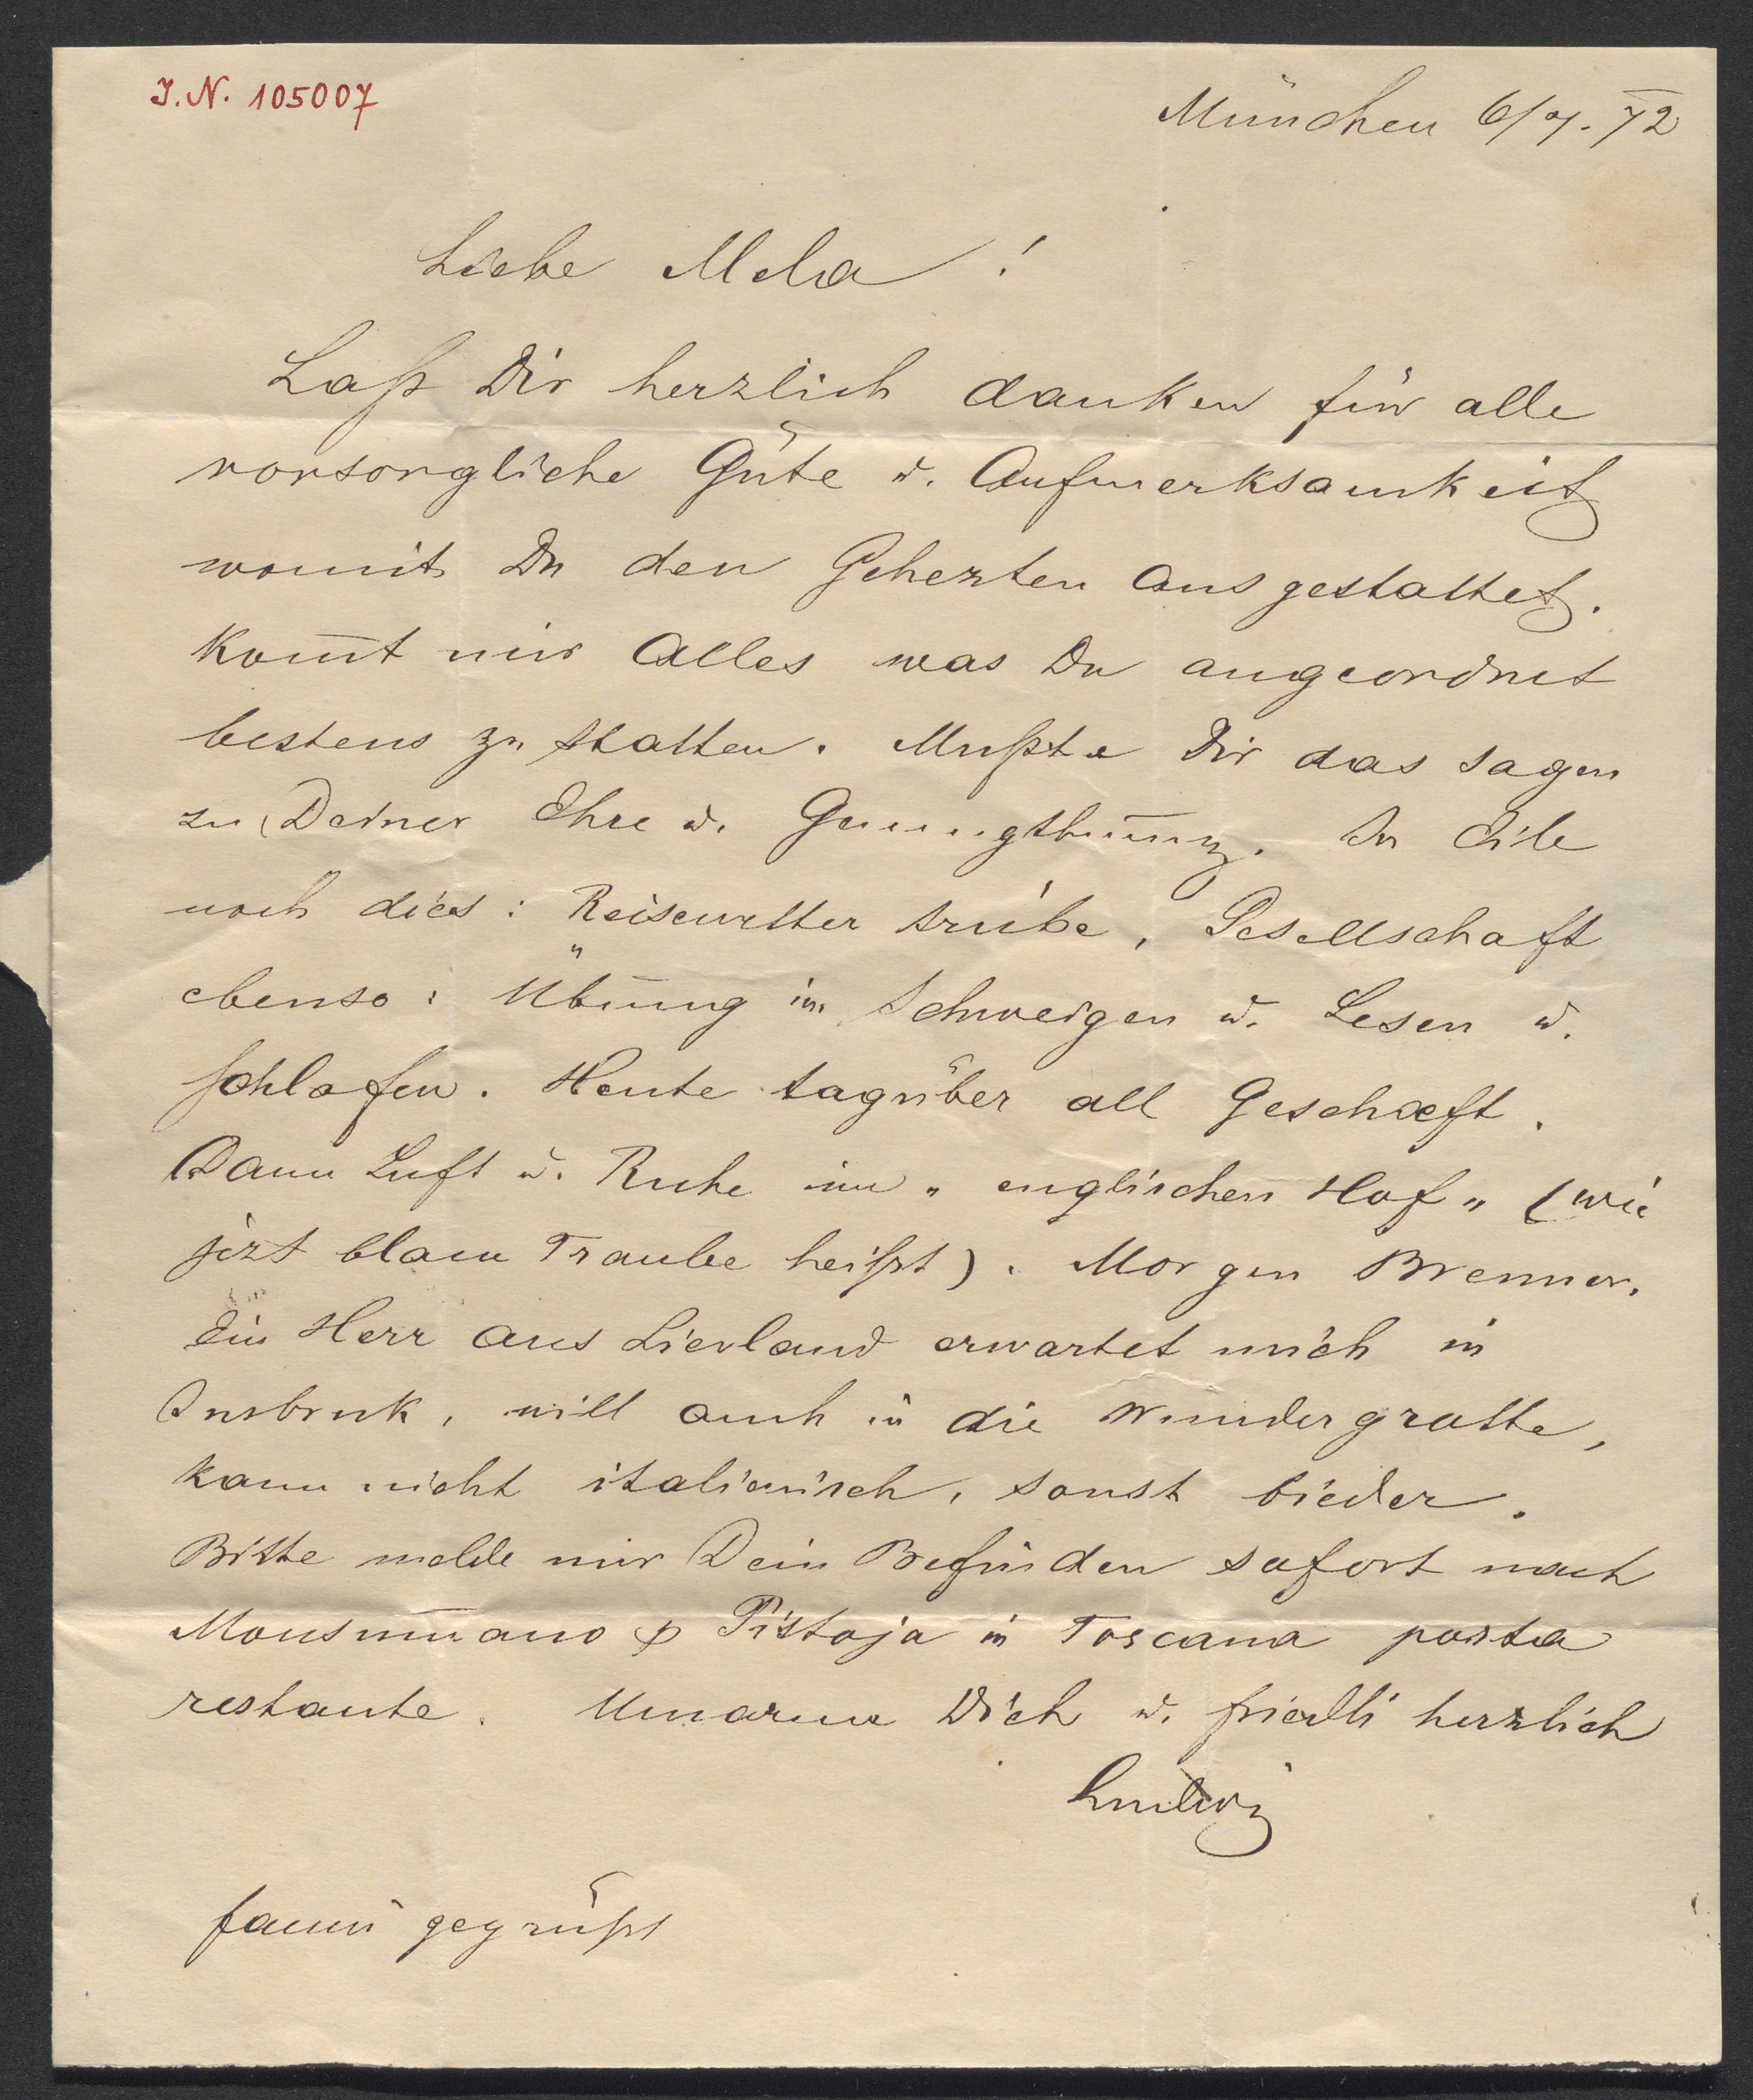 I.N. 105007
München 6/7. 72
Liebe Mela!
Laß Dir herzlich danken für alle
vorsorgliche Güte u. Aufmerksamkeit
womit Du den Gehezten ausgestattet.
Kom̅t mir Alles was Du angeordnet
bestens zu statten. Mußte Dir das sagen
zu Deiner Ehre u. Genugthuung. In Eile
noch dies: Reisewetter trübe, Gesellschaft
ebenso: Übung im Schweigen u. Lesen u.
schlafen. Heute tagüber all Geschæft.
Dann Luft u. Ruhe im „englischen Hof" (wie
jezt blaue Traube heißt). Morgen Brenner.
Ein Herr aus Lievland erwartet mich in
Insbruk, will auch in die Wundergrotte,
kann nicht italienisch, sonst bieder.
Bitte melde mir Dein Befinden sofort nach
Monsum̅ano p Pistoja in Toscana posta
restante. Umarme Dich u. friedli herzlich
Ludwig
fanni gegrüßt